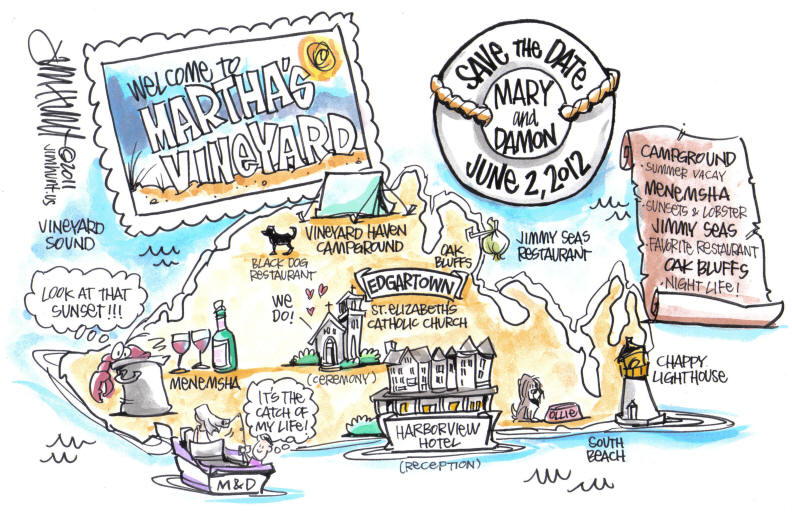 WELCOME TO
MARTHA'S
VINEYARD
©2011
JIMHUNT.US
SAVE THE DATE
MARY
and
DAMON
JUNE 2, 2012
CAMPGROUND
·SUMMER VACAY
MENEMSHA
·SUNSETS & LOBSTER
JIMMY SEAS
·FAVORITE RESTAURANT
OAK BLUFFS
·NIGHT LIFE!
VINEYARD
SOUND
VINEYARD HAVEN
CAMPGROUND
BLACK DOG
RESTAURANT
OAK
BLUFFS
JIMMY SEAS
RESTAURANT
LOOK AT THAT
SUNSET!!!
WE
DO!
EDGARTOWN
ST. ELIZABETHS
CATHOLIC CHURCH
(CEREMONY)
MENEMSHA
CHAPPY
LIGHTHOUSE
IT'S THE
CATCH OF
MY LIFE!
M&D
HARBORVIEW
HOTEL
(RECEPTION)
OLLIE
SOUTH
BEACH